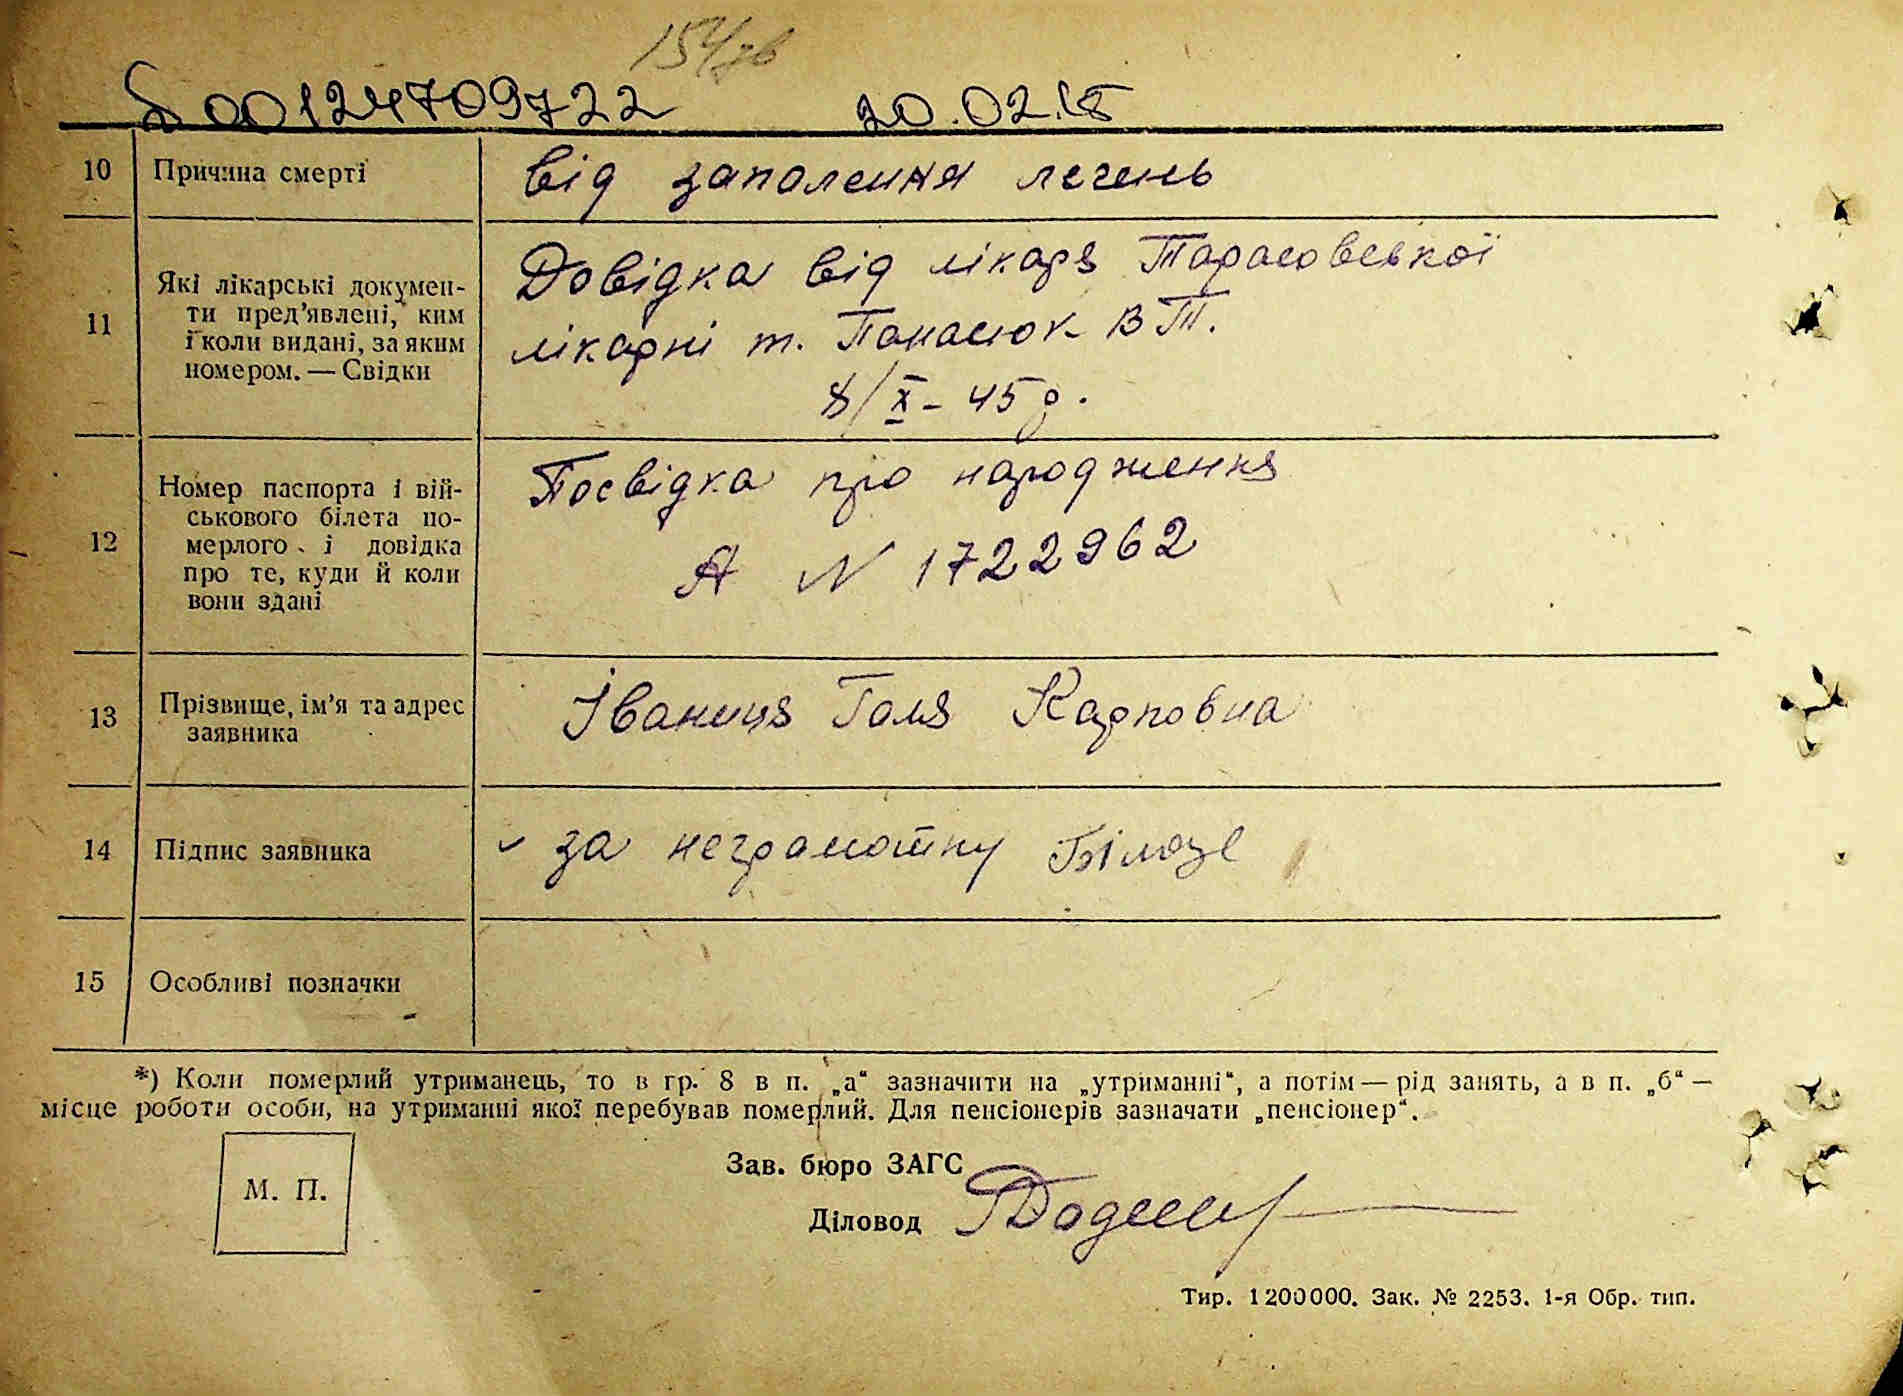 154зв
00124709722 20.02.15
10 Причина смерті від запалення легень
11 Які лікарські докумен-
ти пред'явлені, ким
і коли видані, за яким
номером. — Свідки
Довідка від лікаря Тарасовської
лікарні т. Панасюк В Т.
8/X - 45 р.
12 Номер паспорта і вій-
ськового білета по-
мерлого і довідка
про те, куди й коли
вони здані
Посвідка про народження
А N 1722962
13 Прізвище, ім'я та адрес
заявника
Іваниця Галя Карповна
14 Підпис заявника за неграмотну
15 Особливі позначки
*) Коли померлий утриманець, то в гр. 8 в п. „а“ зазначити на „утриманні“, а потім — рід занять, а в п. „б“ —
місце роботи особи, на утриманні якої перебував померлий. Для пенсіонерів зазначати „пенсіонер“.
М. П.
Зав. бюро ЗАГС
Діловод
Тир. 1200000. Зак. № 2253. 1-я Обр. тип.